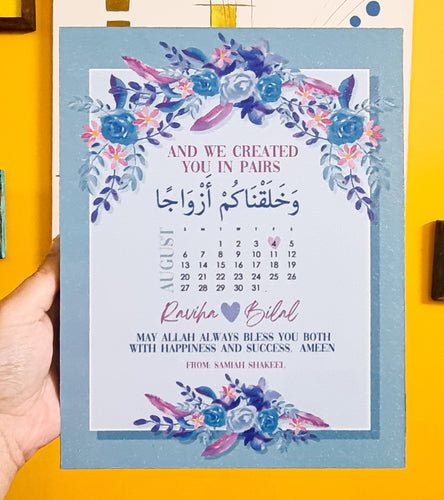 AND WE CREATED
YOU IN PAIRS
وَخَلَقْنَاكُمْ أَزْوَاجًا
AUGUST
S M T W T F S
1 2 3 4 5
6 7 8 9 10 11 12
13 14 15 16 17 18 19
20 21 22 23 24 25 26
27 28 29 30 31
Raviha Bilal
MAY ALLAH ALWAYS BLESS YOU BOTH
WITH HAPPINESS AND SUCCESS. AMEEN
FROM: SAMIAH SHAKEEL